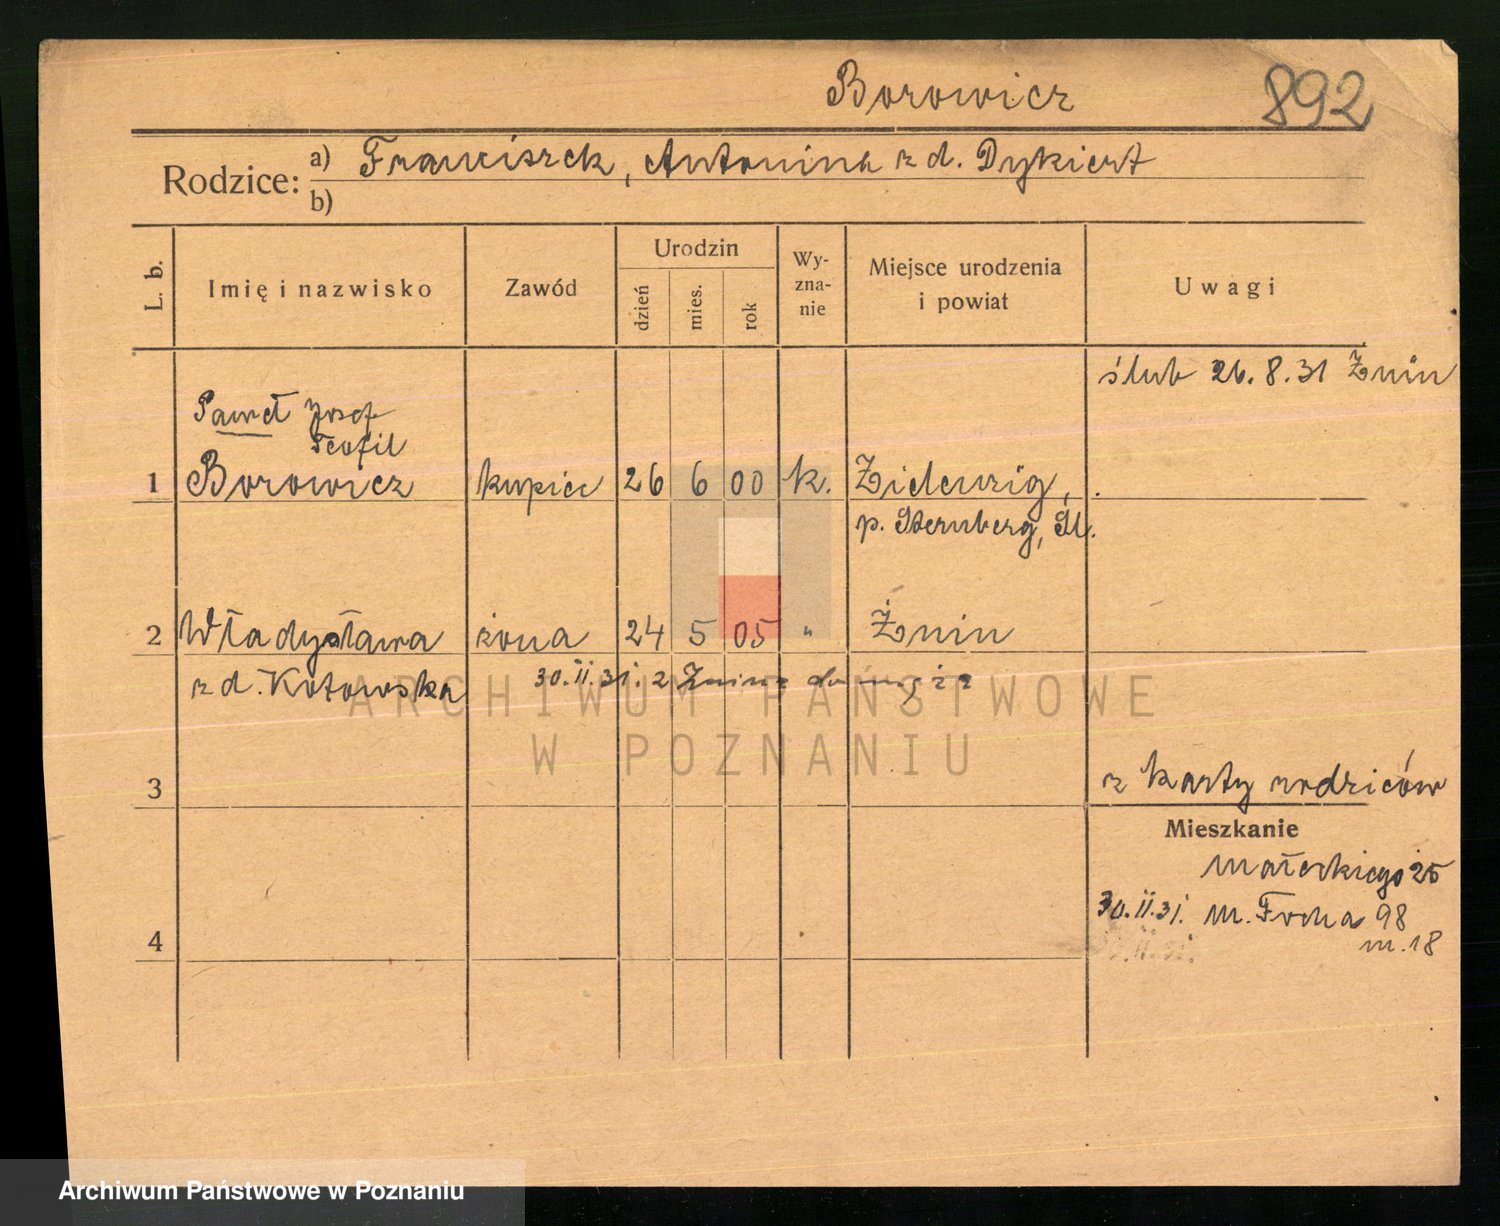 Borowicz
892
Rodzice: a) Franciszek, Antonina z d. Dykiert
b)
L. b.
Imię i nazwisko
Zawód
Urodzin
dzień
mies.
rok
Wy-
zna-
nie
Miejsce urodzenia
i powiat
Uwagi
ślub 26.8.31 Żnin
Paweł Józef
Teofil
1 Borowicz kupiec 26 6 00 k. Zielenzig,
p. Sternberg,
2 Władysława żona 24 5 05 " Żnin
z d. Kotowska
30.11.31. z Żnina do męża
ARCHIWUM PAŃSTWOWE
W POZNANIU
z karty rodziców
3
Mieszkanie
Małeckiego 25
30.11.31. M. Focha 98
m. 18
4
Archiwum Państwowe w Poznaniu